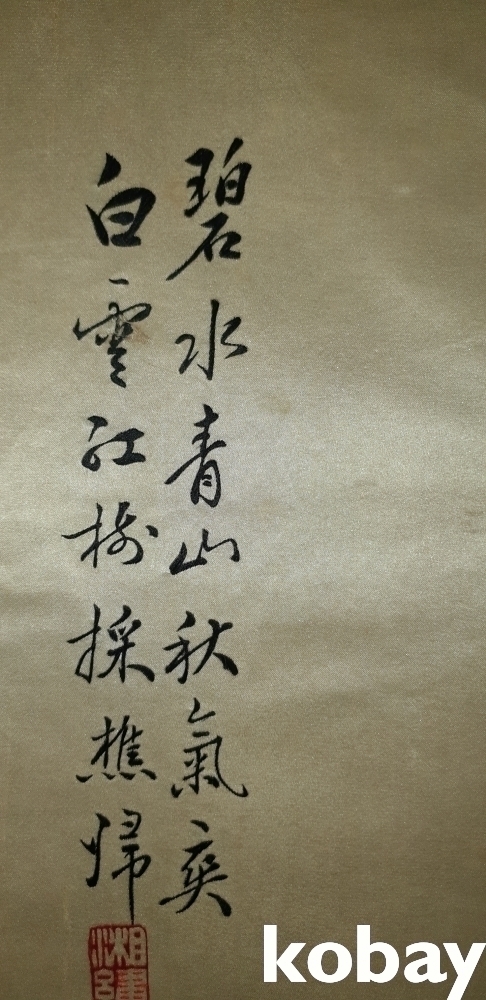 碧水青山秋氣爽
白雲紅樹採樵歸
kobay